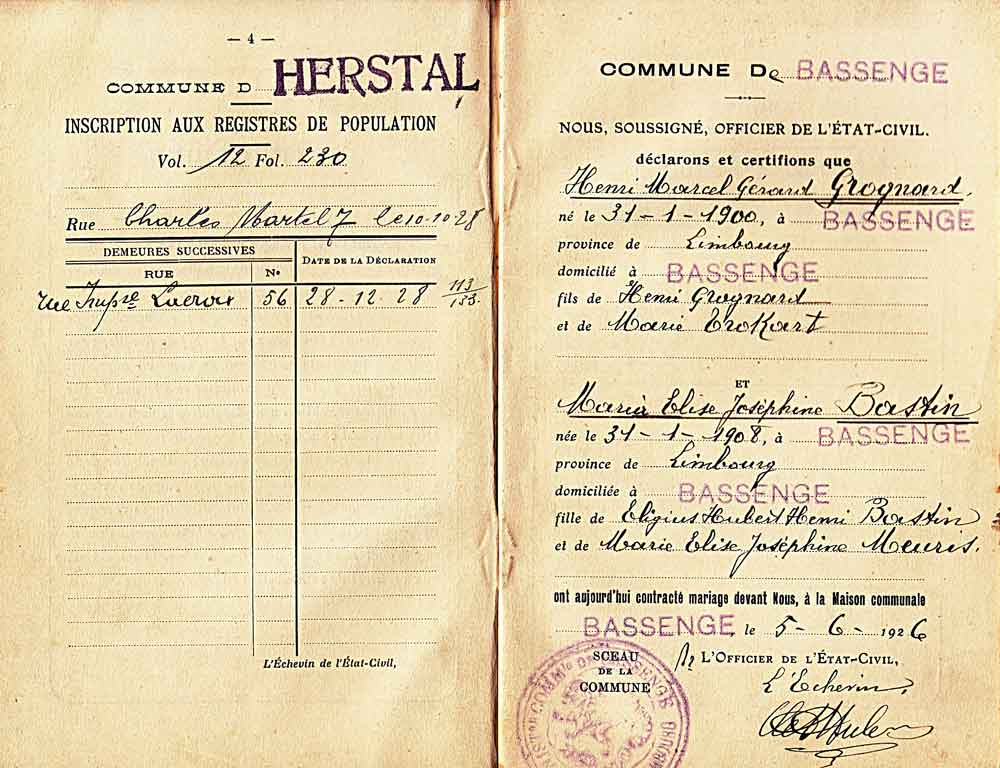 — 4 —
COMMUNE D HERSTAL
INSCRIPTION AUX REGISTRES DE POPULATION
Vol. 12 Fol. 230
Rue Charles Martel 7 le 10-10-28
DEMEURES SUCCESSIVES
DATE DE LA DÉCLARATION
RUE No
rue Lacroix 56 28-12-28 113/133.
L'Échevin de l'État-Civil,
COMMUNE De BASSENGE
NOUS, SOUSSIGNÉ, OFFICIER DE L'ÉTAT-CIVIL.
déclarons et certifions que
Henri Marcel Gérard Grognard.
né le 31-1-1900, à BASSENGE
province de Limbourg
domicilié à BASSENGE
fils de Henri Grognard
et de Marie Trokart
ET
Maria Elise Joséphine Bastin
née le 31-1-1908, à BASSENGE
province de Limbourg
domiciliée à BASSENGE
fille de Eligius Hubert Henri Bastin
et de Marie Elise Joséphine Meuris.
ont aujourd'hui contracté mariage devant Nous, à la Maison communale
BASSENGE, le 5-6-1926
SCEAU
DE LA
COMMUNE
L'OFFICIER DE L'ÉTAT-CIVIL,
L'Echevin,